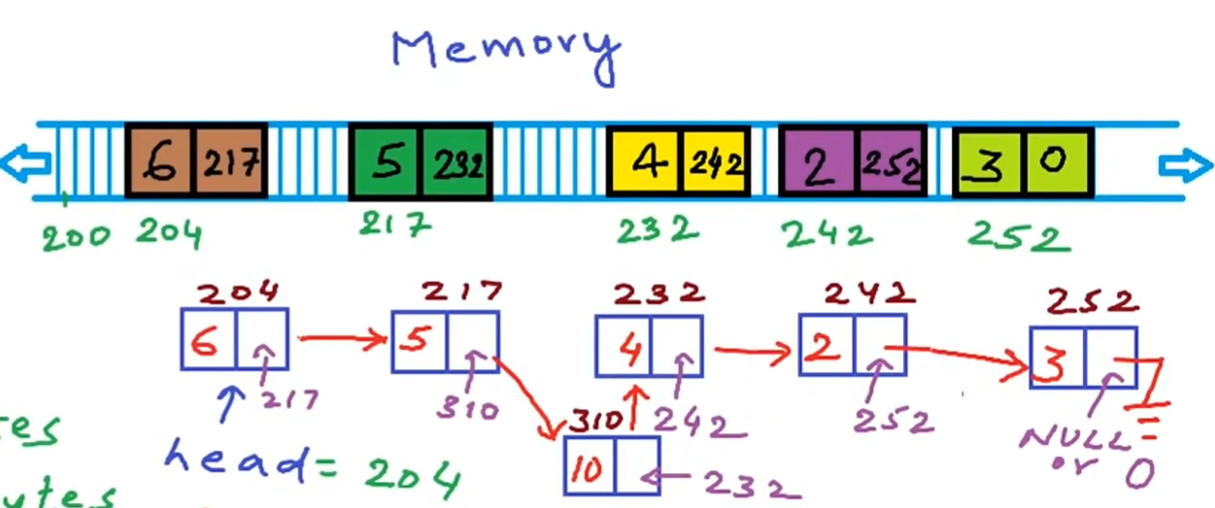 Memory
6 217 5 232 4 242 2 252 3 0
200 204 217 232 242 252
204 217 232 242 252
6 5 4 2 3
217 310 310 242 252 NULL or 0
head = 204
10 232
tes
ytes